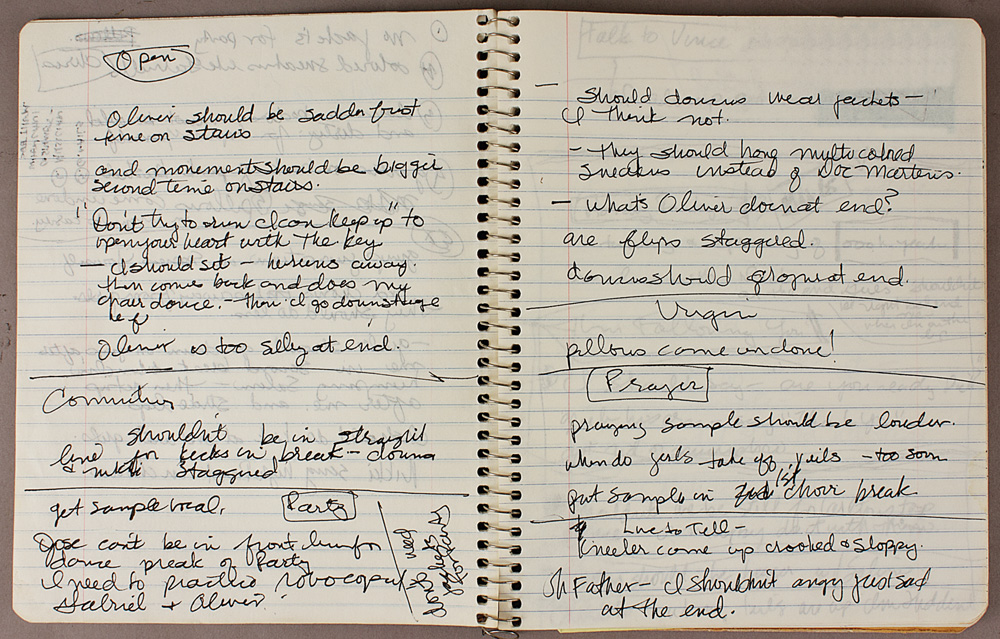 Open
Oliver should be sadder first
time on stairs
and movement should be bigger
second time on stairs.
"Don't try to run I can keep up" to
open your heart with the key
— I should sit — he runs away.
then comes back and does my
chair dance. — then I go downstage
Oliver is too silly at end.
Causing
shouldn't be in straight
line for kicks in break —
staggered
get sample vocal.
Party
Jose can't be in front during
dance break of Party
I need to practice robocop w/
Gabriel + Oliver.
dont need
jackets
for Party
— should dancers wear jackets —
I think not.
— They should have multicolored
sneakers instead of Doc Martens.
— what's Oliver do in at end?
are flips staggered.
should at end.
Virgin
pillows come undone!
Prayer
praying sample should be louder.
when do girls take off veils — too soon
put sample in 1st choir break
Live to Tell —
Kneeler came up crooked & sloppy.
Oh Father — I shouldn't angry just sad
at the end.